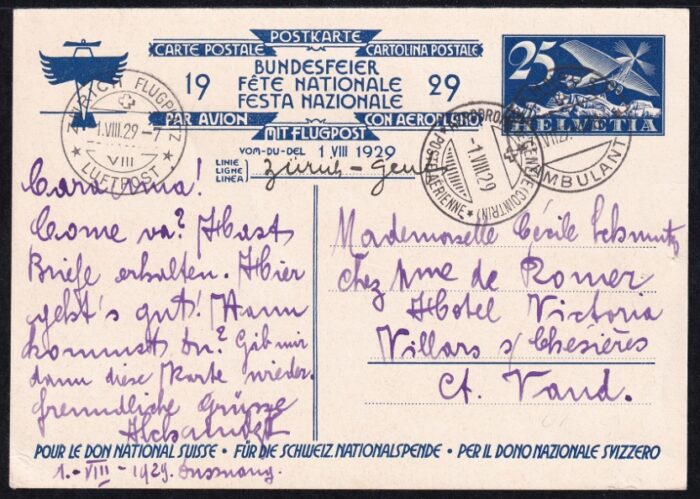 POSTKARTE
CARTE POSTALE CARTOLINA POSTALE
19 BUNDESFEIER 29
FÊTE NATIONALE
FESTA NAZIONALE
PAR AVION CON AEROPLANO
MIT FLUGPOST
VOM-DU-DEL 1 VIII 1929
LINIE
LIGNE
LINEA
Zürich - Genf
25
HELVETIA
ZÜRICH FLUGPLATZ
1.VIII.29-7
VIII
LUFTPOST
AÉRODROME GENÈVE (COINTRIN)
-1.VIII.29
POSTE AÉRIENNE
AMBULANT
Cara mia!
Come va? Hast
Briefe erhalten. Hier
geht's gut! Wann
kommst Du? Gib mir
dann diese Karte wieder.
freundliche Grüsse
Mademoiselle Cécile Schmutz
chez Mme de Romer
Hotel Victoria
Villars s/ Chesières
Ct. Vaud.
POUR LE DON NATIONAL SUISSE • FÜR DIE SCHWEIZ. NATIONALSPENDE • PER IL DONO NAZIONALE SVIZZERO
1.-VIII-1929.